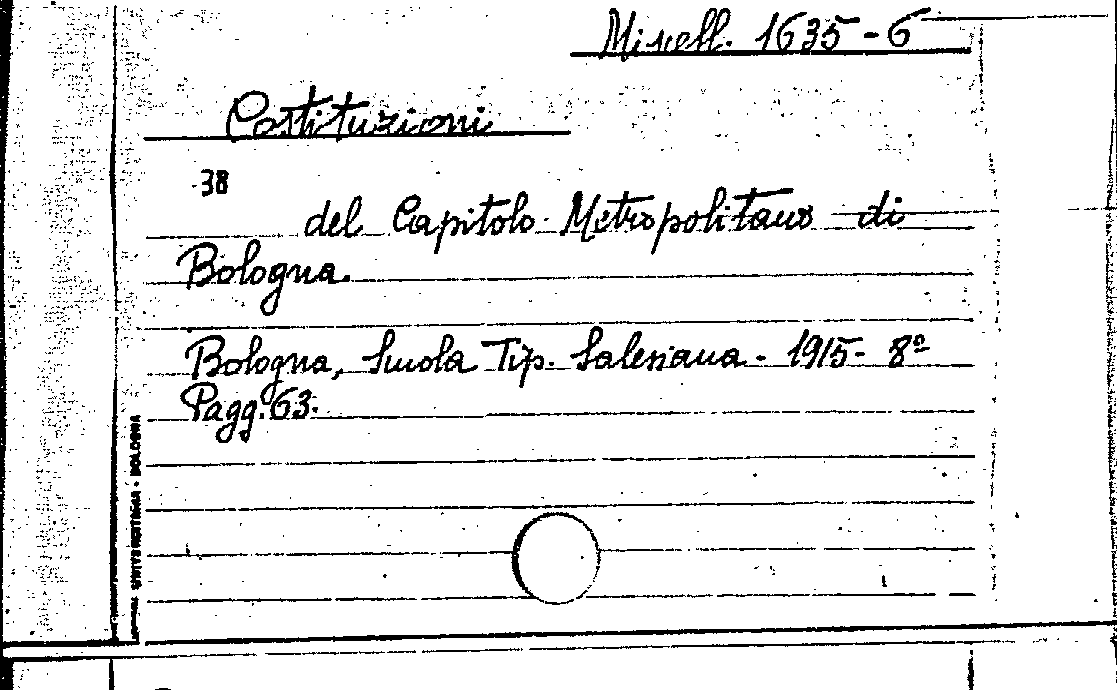 Miscell. 1635-6
Costituzioni
38
del Capitolo Metropolitano di
Bologna.
Bologna, Scuola Tip. Salesiana - 1915 - 8º
Pagg. 63.
BOLOGNA